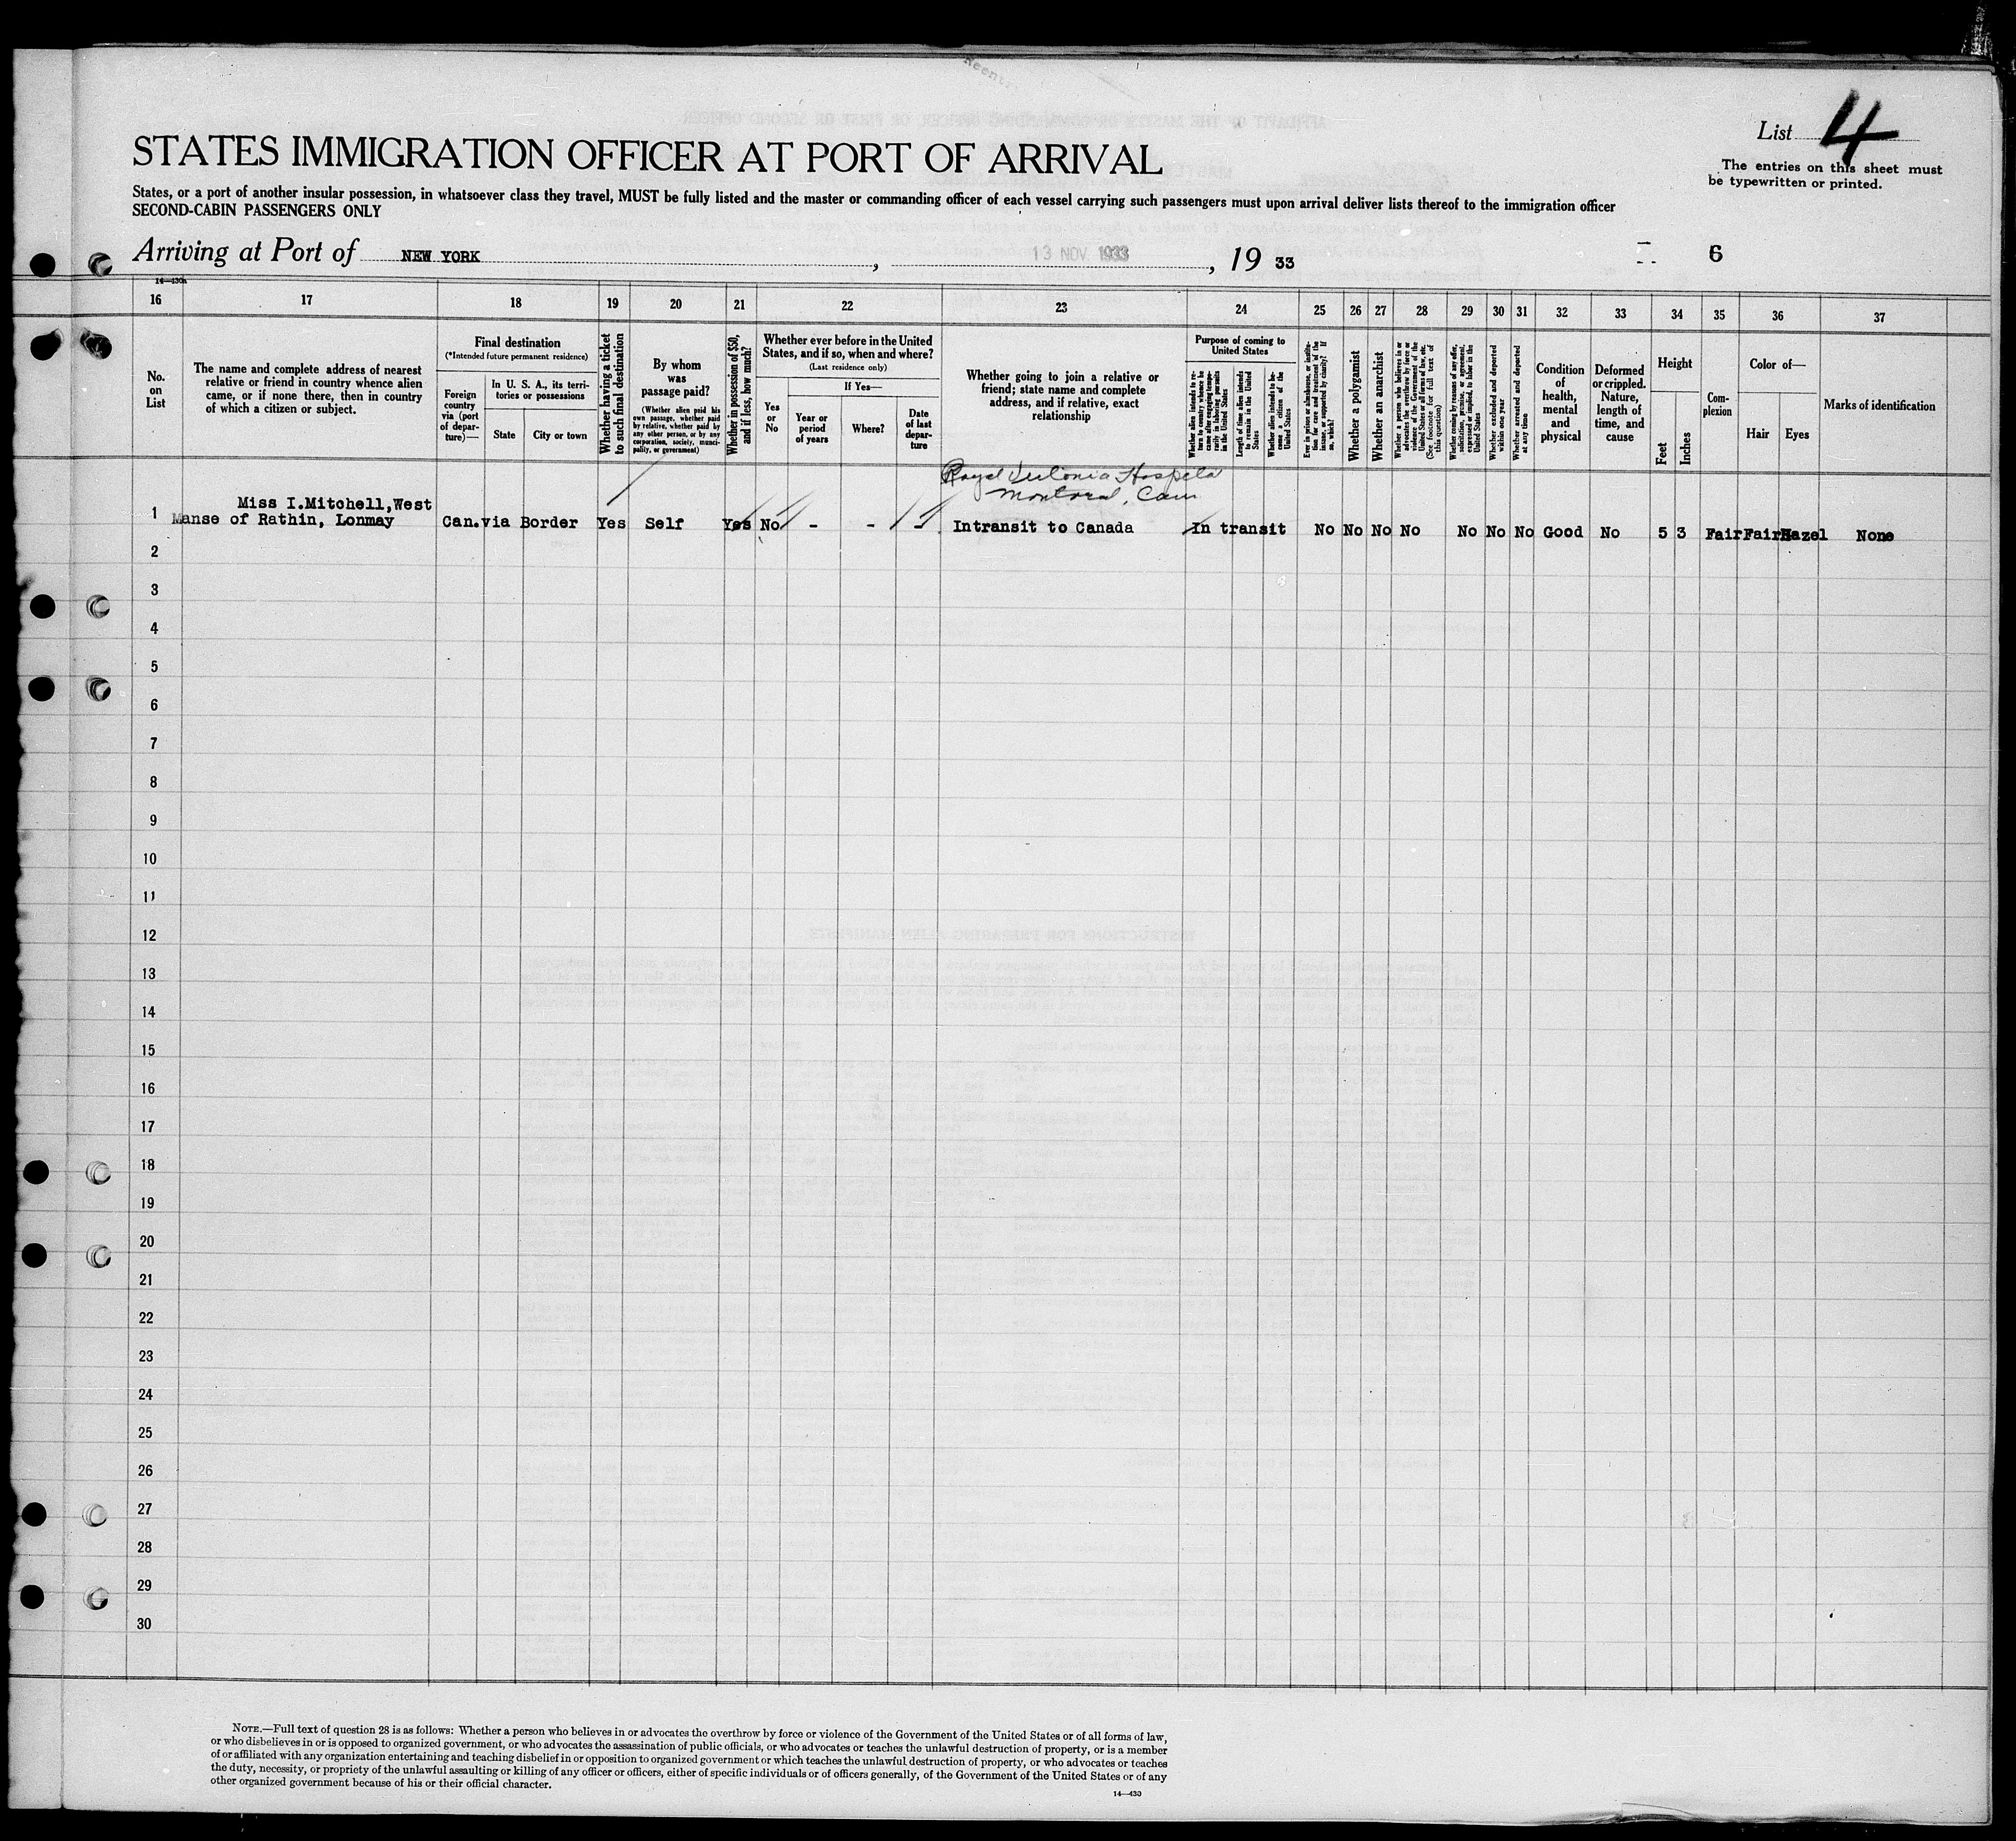 Reent
List 4
The entries on this sheet must
be typewritten or printed.
STATES IMMIGRATION OFFICER AT PORT OF ARRIVAL
States, or a port of another insular possession, in whatsoever class they travel, MUST be fully listed and the master or commanding officer of each vessel carrying such passengers must upon arrival deliver lists thereof to the immigration officer
SECOND-CABIN PASSENGERS ONLY
Arriving at Port of NEW YORK, 13 NOV. 1933, 19 33
6
14—430a
16 17 18 19 20 21 22 23 24 25 26 27 28 29 30 31 32 33 34 35 36 37
No.
on
List
The name and complete address of nearest
relative or friend in country whence alien
came, or if none there, then in country
of which a citizen or subject.
Final destination
(*Intended future permanent residence)
Foreign
country
via (port
of depar-
ture)—
In U. S. A., its terri-
tories or possessions
State
City or town
Whether having a ticket
to such final destination
By whom
was
passage paid?
(Whether alien paid his
own passage, whether paid
by relative, whether paid by
any other person, or by any
corporation, society, munici-
pality, or government)
Whether in possession of $50,
and if less, how much?
Whether ever before in the United
States, and if so, when and where?
(Last residence only)
Yes
or
No
If Yes—
Year or
period
of years
Where?
Date
of last
depar-
ture
Whether going to join a relative or
friend; state name and complete
address, and if relative, exact
relationship
Purpose of coming to
United States
Whether alien intends to re-
turn to country whence he
came after engaging tempo-
rarily in laboring pursuits
in the United States
Length of time alien intends
to remain in the United
States
Whether alien intends to be-
come a citizen of the
United States
Ever in prison or almshouse, or institu-
tion for care and treatment of the
insane, or supported by charity? If
so, which?
Whether a polygamist
Whether an anarchist
Whether a person who believes in or
advocates the overthrow by force or
violence of the Government of the
United States or all forms of law, etc.
(See footnote for full text of
this question)
Whether coming by reasons of any offer,
solicitation, promise, or agreement,
expressed or implied, to labor in the
United States
Whether excluded and deported
within one year
Whether arrested and deported
at any time
Condition
of
health,
mental
and
physical
Deformed
or crippled.
Nature,
length of
time, and
cause
Height
Feet
Inches
Com-
plexion
Color of—
Hair
Eyes
Marks of identification
Royal Victoria Hospital
Montreal, Can
Miss I.Mitchell,West
1 Manse of Rathin, Lonmay Can.via Border Yes Self Yes No - - - Intransit to Canada In transit No No No No No No No Good No 5 3 Fair Fair Hazel None
2
3
4
5
6
7
8
9
10
11
12
13
14
15
16
17
18
19
20
21
22
23
24
25
26
27
28
29
30
NOTE.—Full text of question 28 is as follows: Whether a person who believes in or advocates the overthrow by force or violence of the Government of the United States or of all forms of law,
or who disbelieves in or is opposed to organized government, or who advocates the assassination of public officials, or who advocates or teaches the unlawful destruction of property, or is a member
of or affiliated with any organization entertaining and teaching disbelief in or opposition to organized government or which teaches the unlawful destruction of property, or who advocates or teaches
the duty, necessity, or propriety of the unlawful assaulting or killing of any officer or officers, either of specific individuals or of officers generally, of the Government of the United States or of any
other organized government because of his or their official character.
14—430